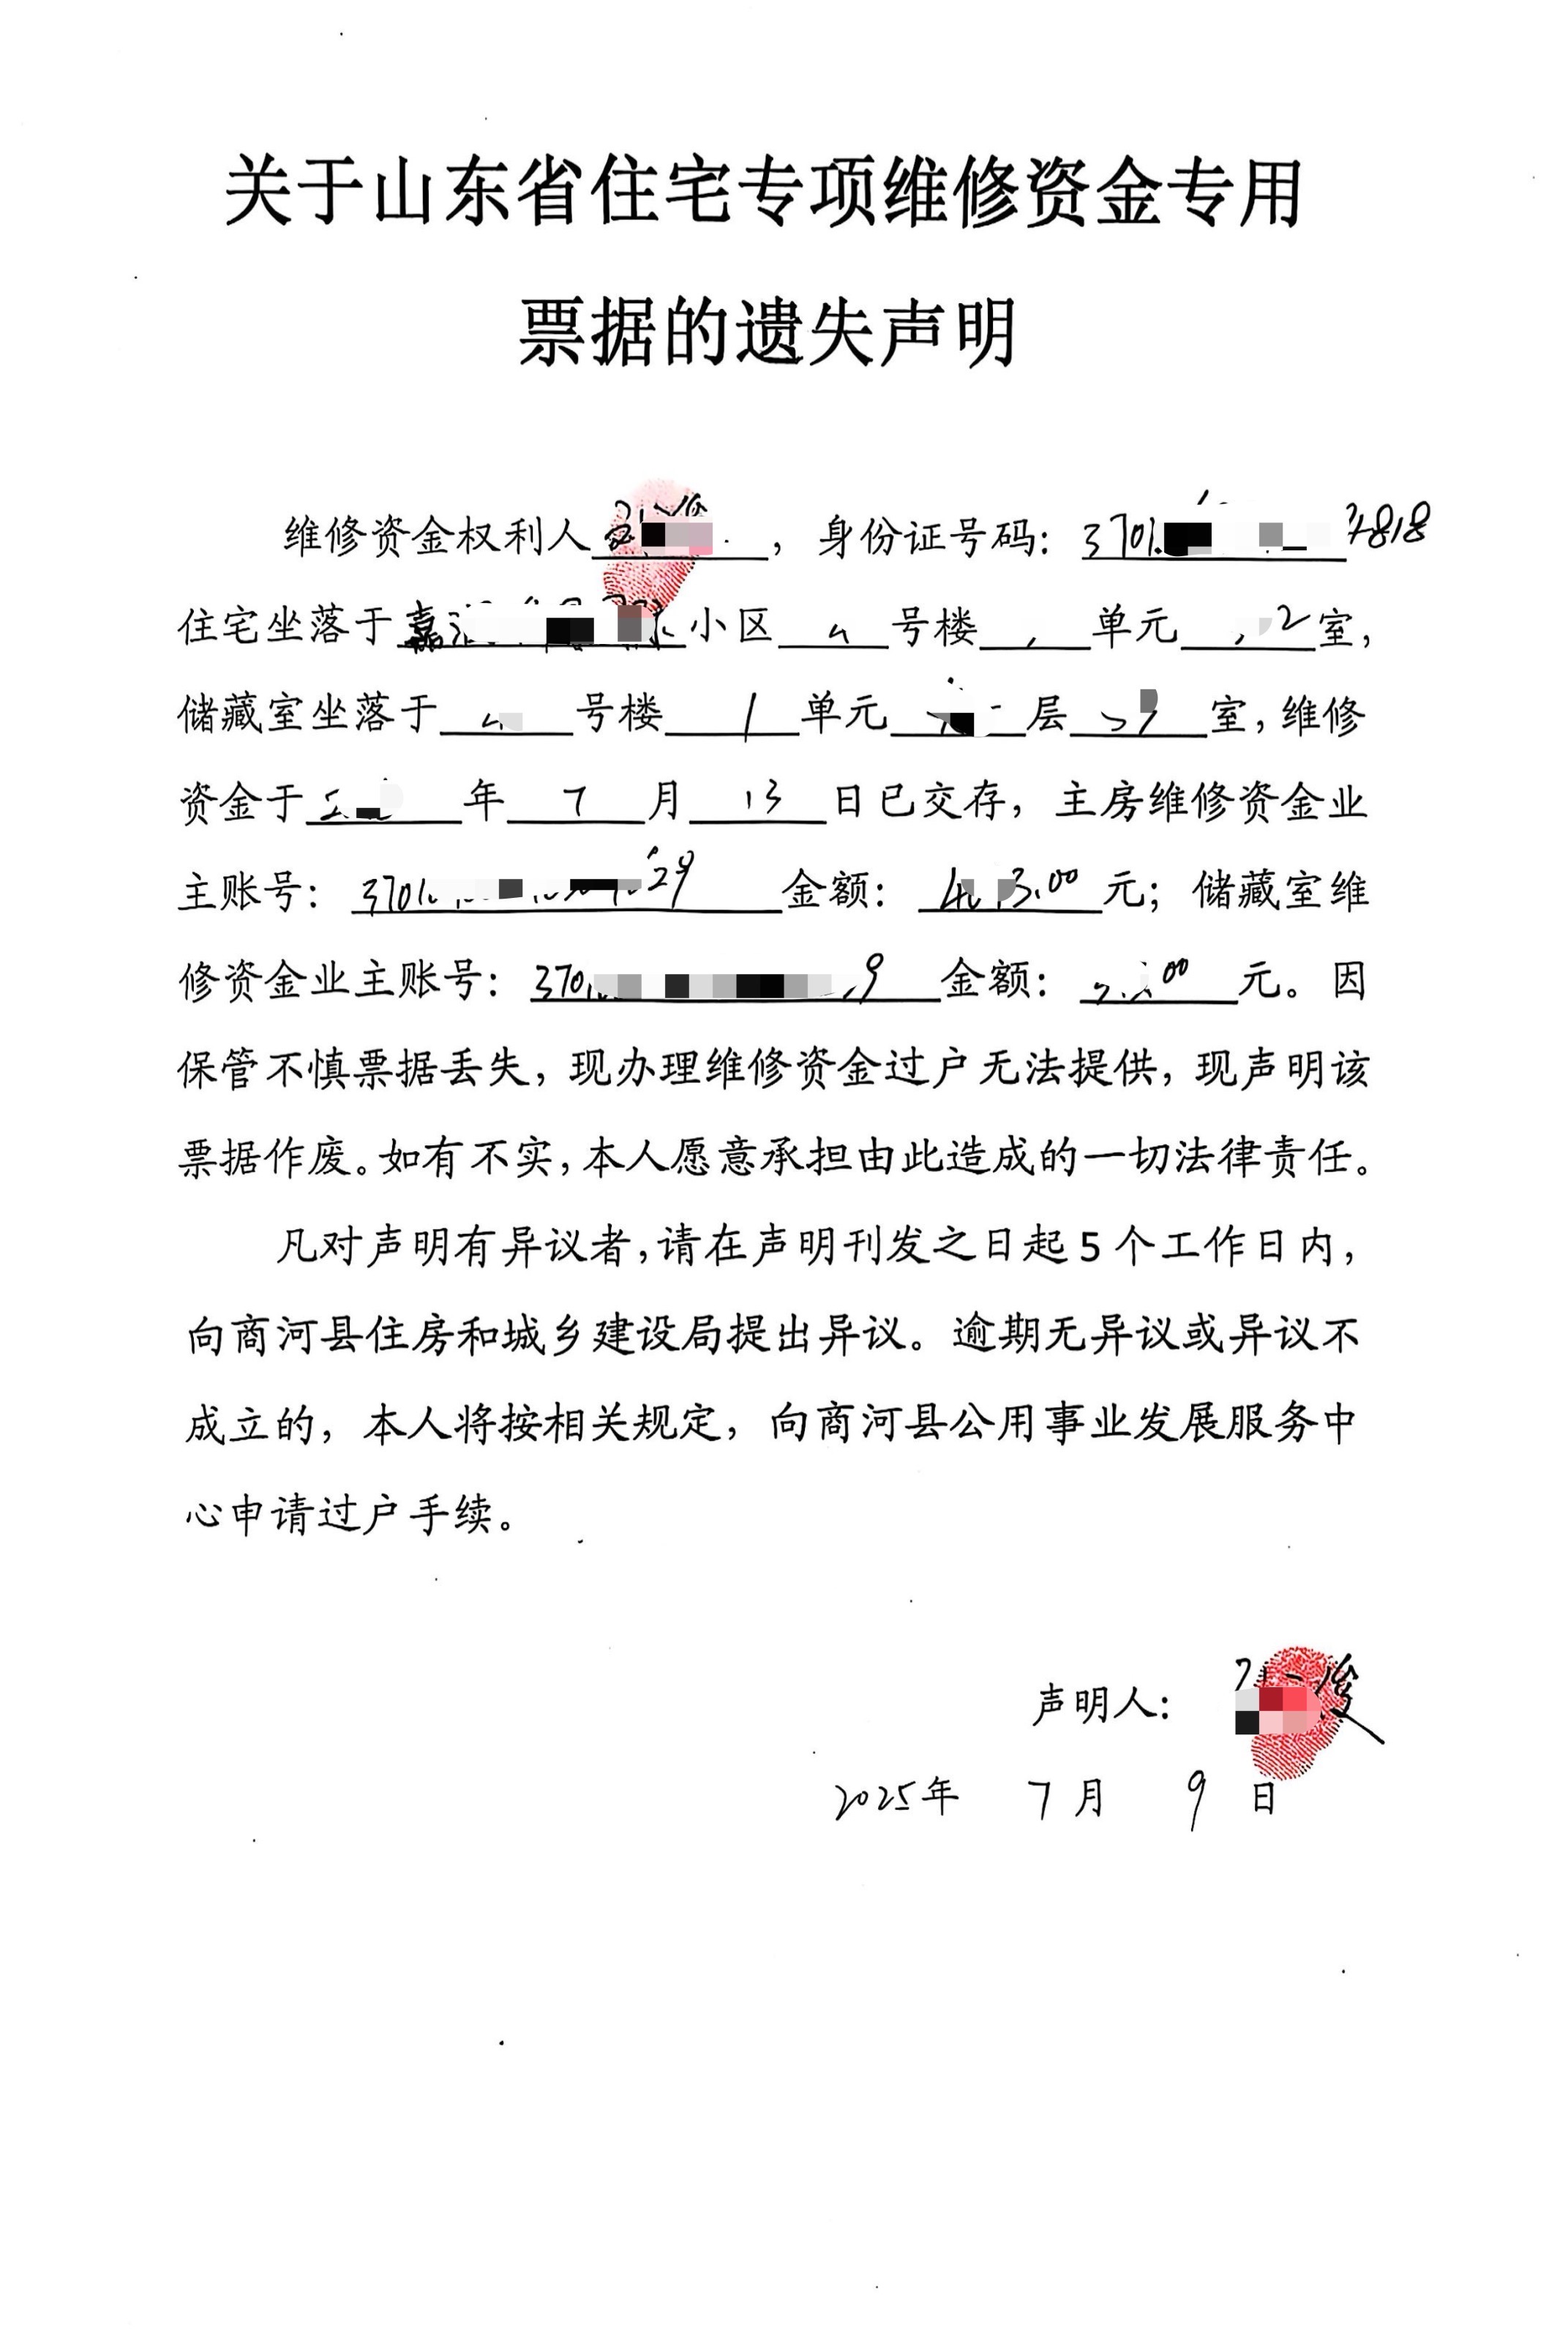 关于山东省住宅专项维修资金专用
票据的遗失声明
维修资金权利人 ，身份证号码：3701 4818
住宅坐落于嘉 小区 号楼 单元 2室，
储藏室坐落于 号楼 1 单元 层 室，维修
资金于 年 7 月 13 日已交存，主房维修资金业
主账号：3701 29 金额：4 3.00 元；储藏室维
修资金业主账号：370 9 金额： .00 元。因
保管不慎票据丢失，现办理维修资金过户无法提供，现声明该
票据作废。如有不实，本人愿意承担由此造成的一切法律责任。
凡对声明有异议者，请在声明刊发之日起 5 个工作日内，
向商河县住房和城乡建设局提出异议。逾期无异议或异议不
成立的，本人将按相关规定，向商河县公用事业发展服务中
心申请过户手续。
声明人： 俊
2025年 7月 9 日